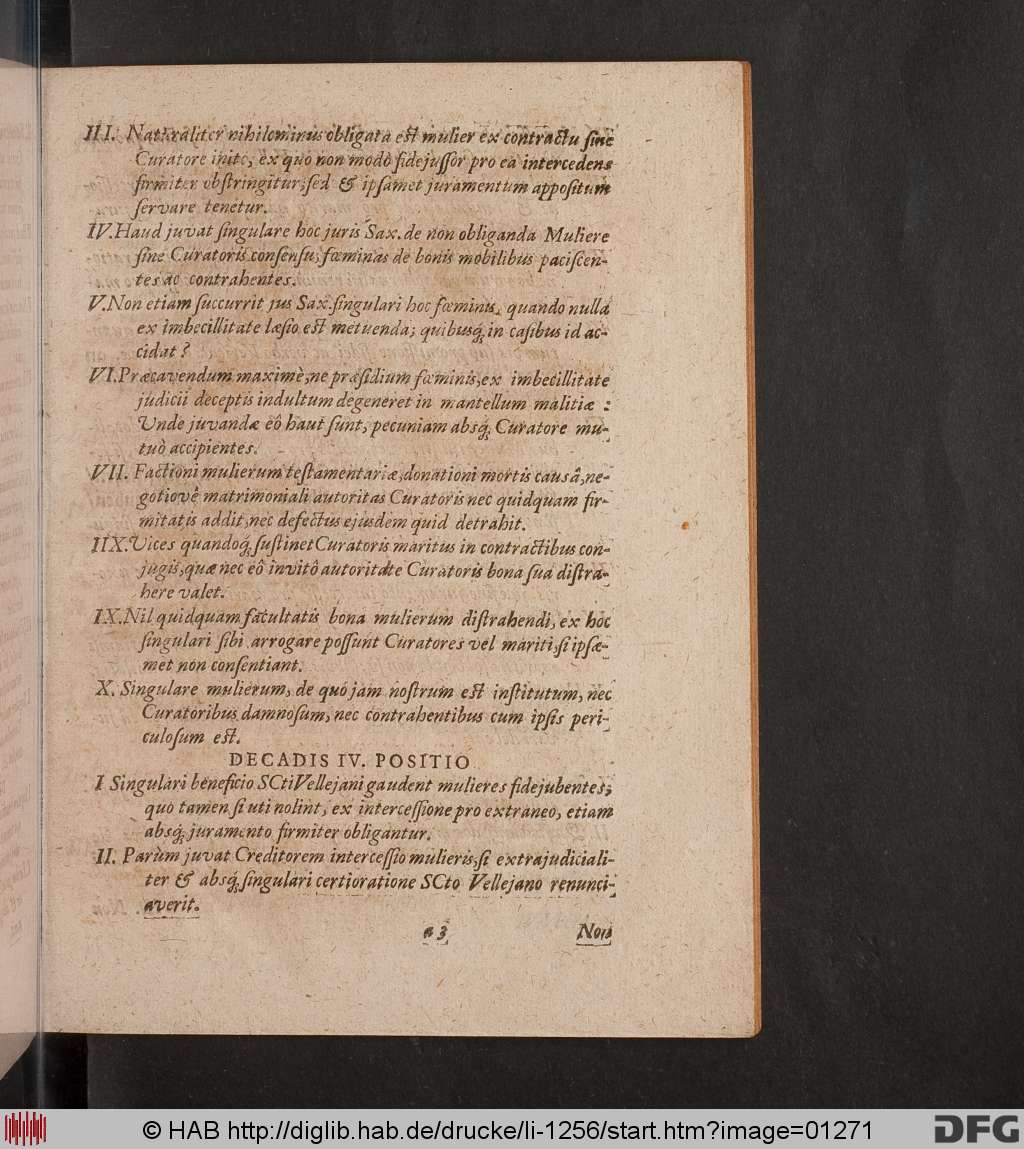 III. Naturaliter nihilominus obligata est mulier ex contractu sine
Curatore inito, ex quo non modò fidejussor pro ea intercedens
firmiter obstringitur, sed & ipsamet juramentum appositum
servare tenetur.
IV. Haud juvat singulare hoc juris Sax. de non obliganda Muliere
sine Curatoris consensu, fœminas de bonis mobilibus paciscen-
tes ac contrahentes.
V. Non etiam succurrit jus Sax. singulari hoc fœminis, quando nulla
ex imbecillitate læsio est metuenda; quibusq́; in casibus id ac-
cidat?
VI. Præcavendum maximè, ne præsidium fœminis, ex imbecillitate
judicii deceptis indultum degeneret in mantellum malitiæ:
Unde juvandæ eô haut sunt, pecuniam absq́; Curatore mu-
tuò accipientes.
VII. Factioni mulierum testamentariæ, donationi mortis causâ, ne-
gotiove matrimoniali autoritas Curatoris nec quidquam fir-
mitatis addit, nec defectus ejusdem quid detrahit.
IIX. Vices quandoq́; sustinet Curatoris maritus in contractibus con-
jugis, quæ nec eô invitô autoritate Curatoris bona sua distra-
here valet.
IX. Nil quidquam facultatis bona mulierum distrahendi, ex hoc
singulari sibi arrogare possunt Curatores vel mariti, si ipsæ-
met non consentiant.
X. Singulare mulierum, de quo jam nostrum est institutum, nec
Curatoribus damnosum, nec contrahentibus cum ipsis peri-
culosum est.
DECADIS IV. POSITIO
I Singulari beneficio SCti Vellejani gaudent mulieres fidejubentes,
quo tamen si uti nolint, ex intercessione pro extraneo, etiam
absq́; juramento firmiter obligantur.
II. Parùm juvat Creditorem intercessio mulieris, si extrajudiciali-
ter & absq́; singulari certioratione SCto Vellejano renunci-
averit.
a 3 Non
© HAB http://diglib.hab.de/drucke/li-1256/start.htm?image=01271
DFG